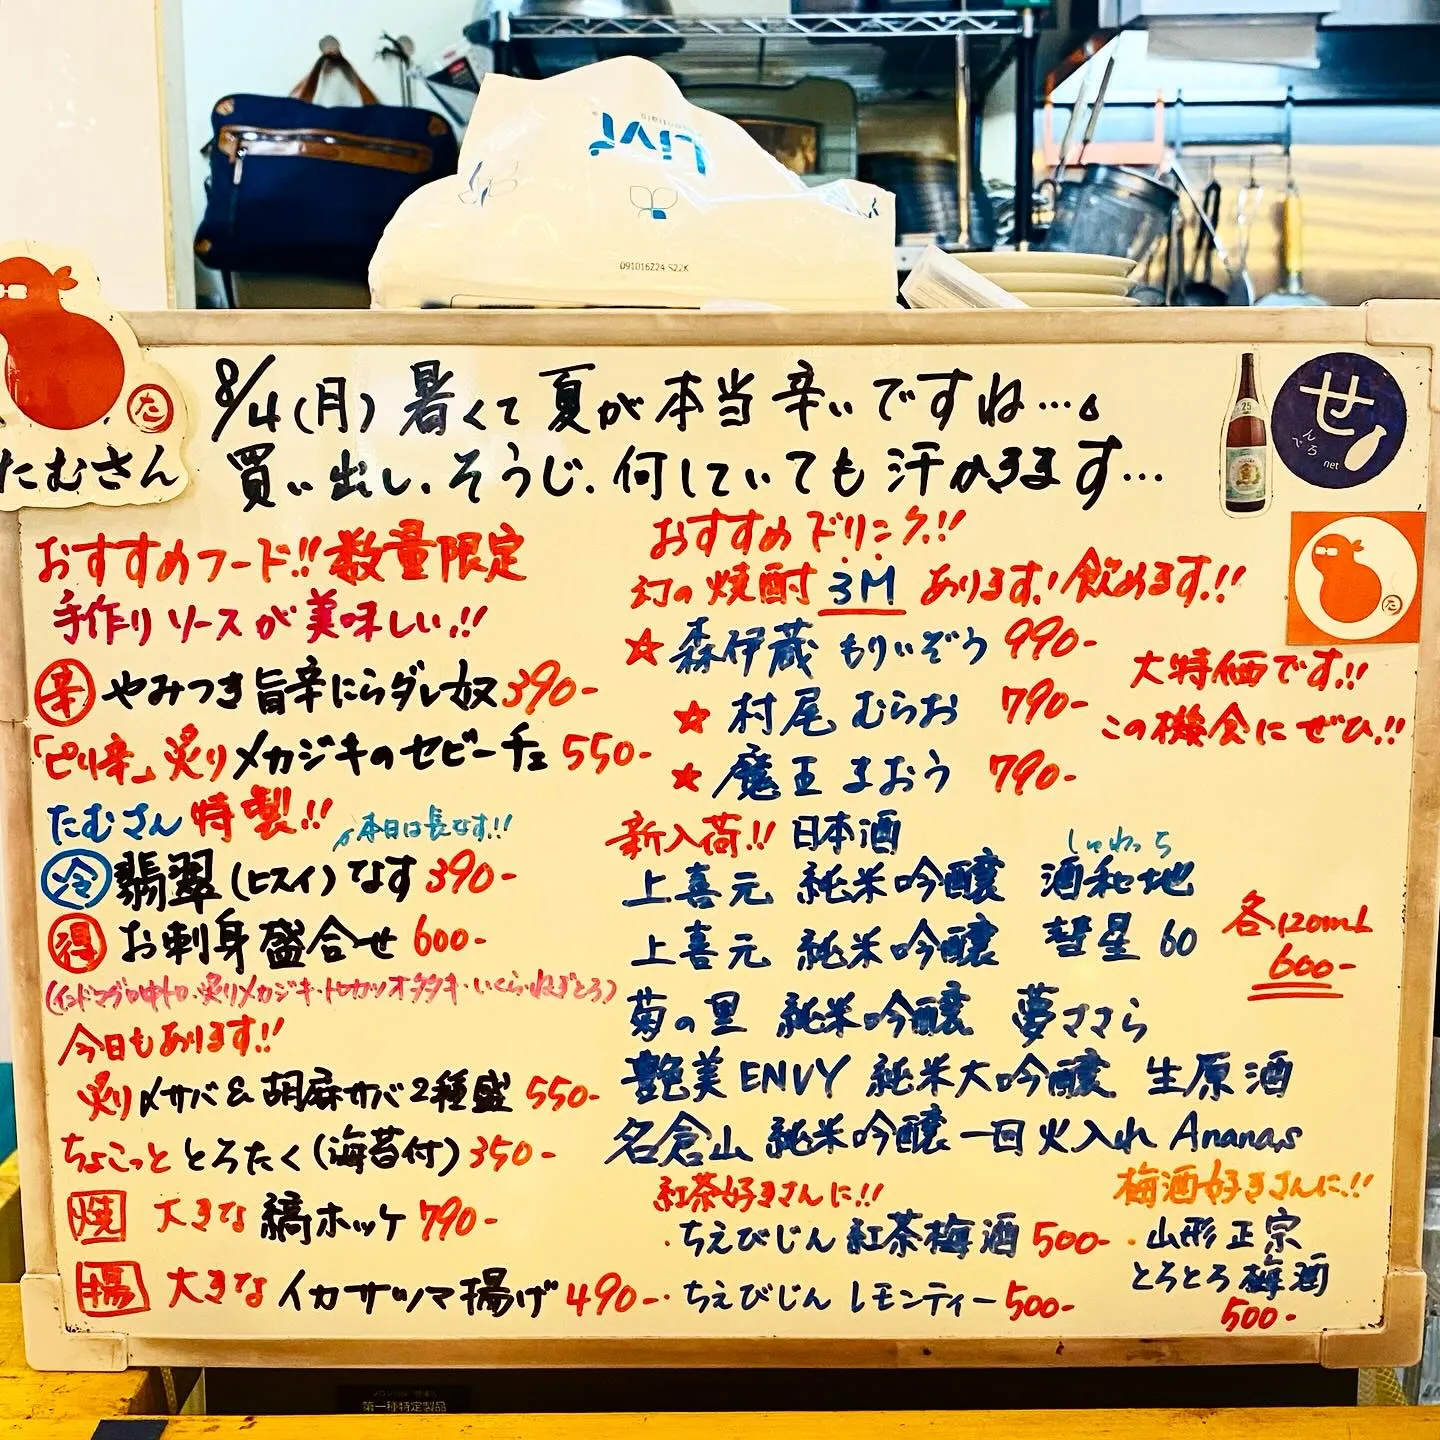 Livi
Essentials
091016Z24 S22K
8/4(月)暑くて夏が本当辛いですね…。
買い出し、そうじ、何していても汗かきます…
た
たむさん
せ
んべろ
net
25
おすすめフード!!数量限定
手作りソースが美味しい!!
辛 やみつき旨辛にらダレ奴 390-
「ピリ辛」炙りメカジキのセビーチェ 550-
たむさん特製!!
本日は長なす!!
冷 翡翠(ヒスイ)なす 390-
得 お刺身盛合せ 600-
(インドマグロ中トロ・炙りメカジキ・トロカツオタタキ・いくら・ねぎとろ)
今日もあります!!
炙り〆サバ&胡麻サバ2種盛 550-
ちょこっと とろたく(海苔付) 350-
焼 大きな 縞ホッケ 790-
揚 大きな イカサツマ揚げ 490-
おすすめドリンク!!
幻の焼酎 3M あります!飲めます!!
☆ 森伊蔵 もりいぞう 990-
★ 村尾 むらお 790-
★ 魔王 まおう 790-
大特価です!!
この機会にぜひ!!
た
新入荷!! 日本酒
しゅわっち
上喜元 純米吟醸 酒和地
上喜元 純米吟醸 彗星60
菊の里 純米吟醸 夢ささら
艶美ENVY 純米大吟醸 生原酒
名倉山 純米吟醸 一回火入れ Ananas
各120mL
600-
紅茶好きさんに!!
・ちえびじん 紅茶梅酒 500-
・ちえびじん レモンティー 500-
梅酒好きさんに!!
・山形正宗
とろとろ梅酒
500-
第一種特定製品